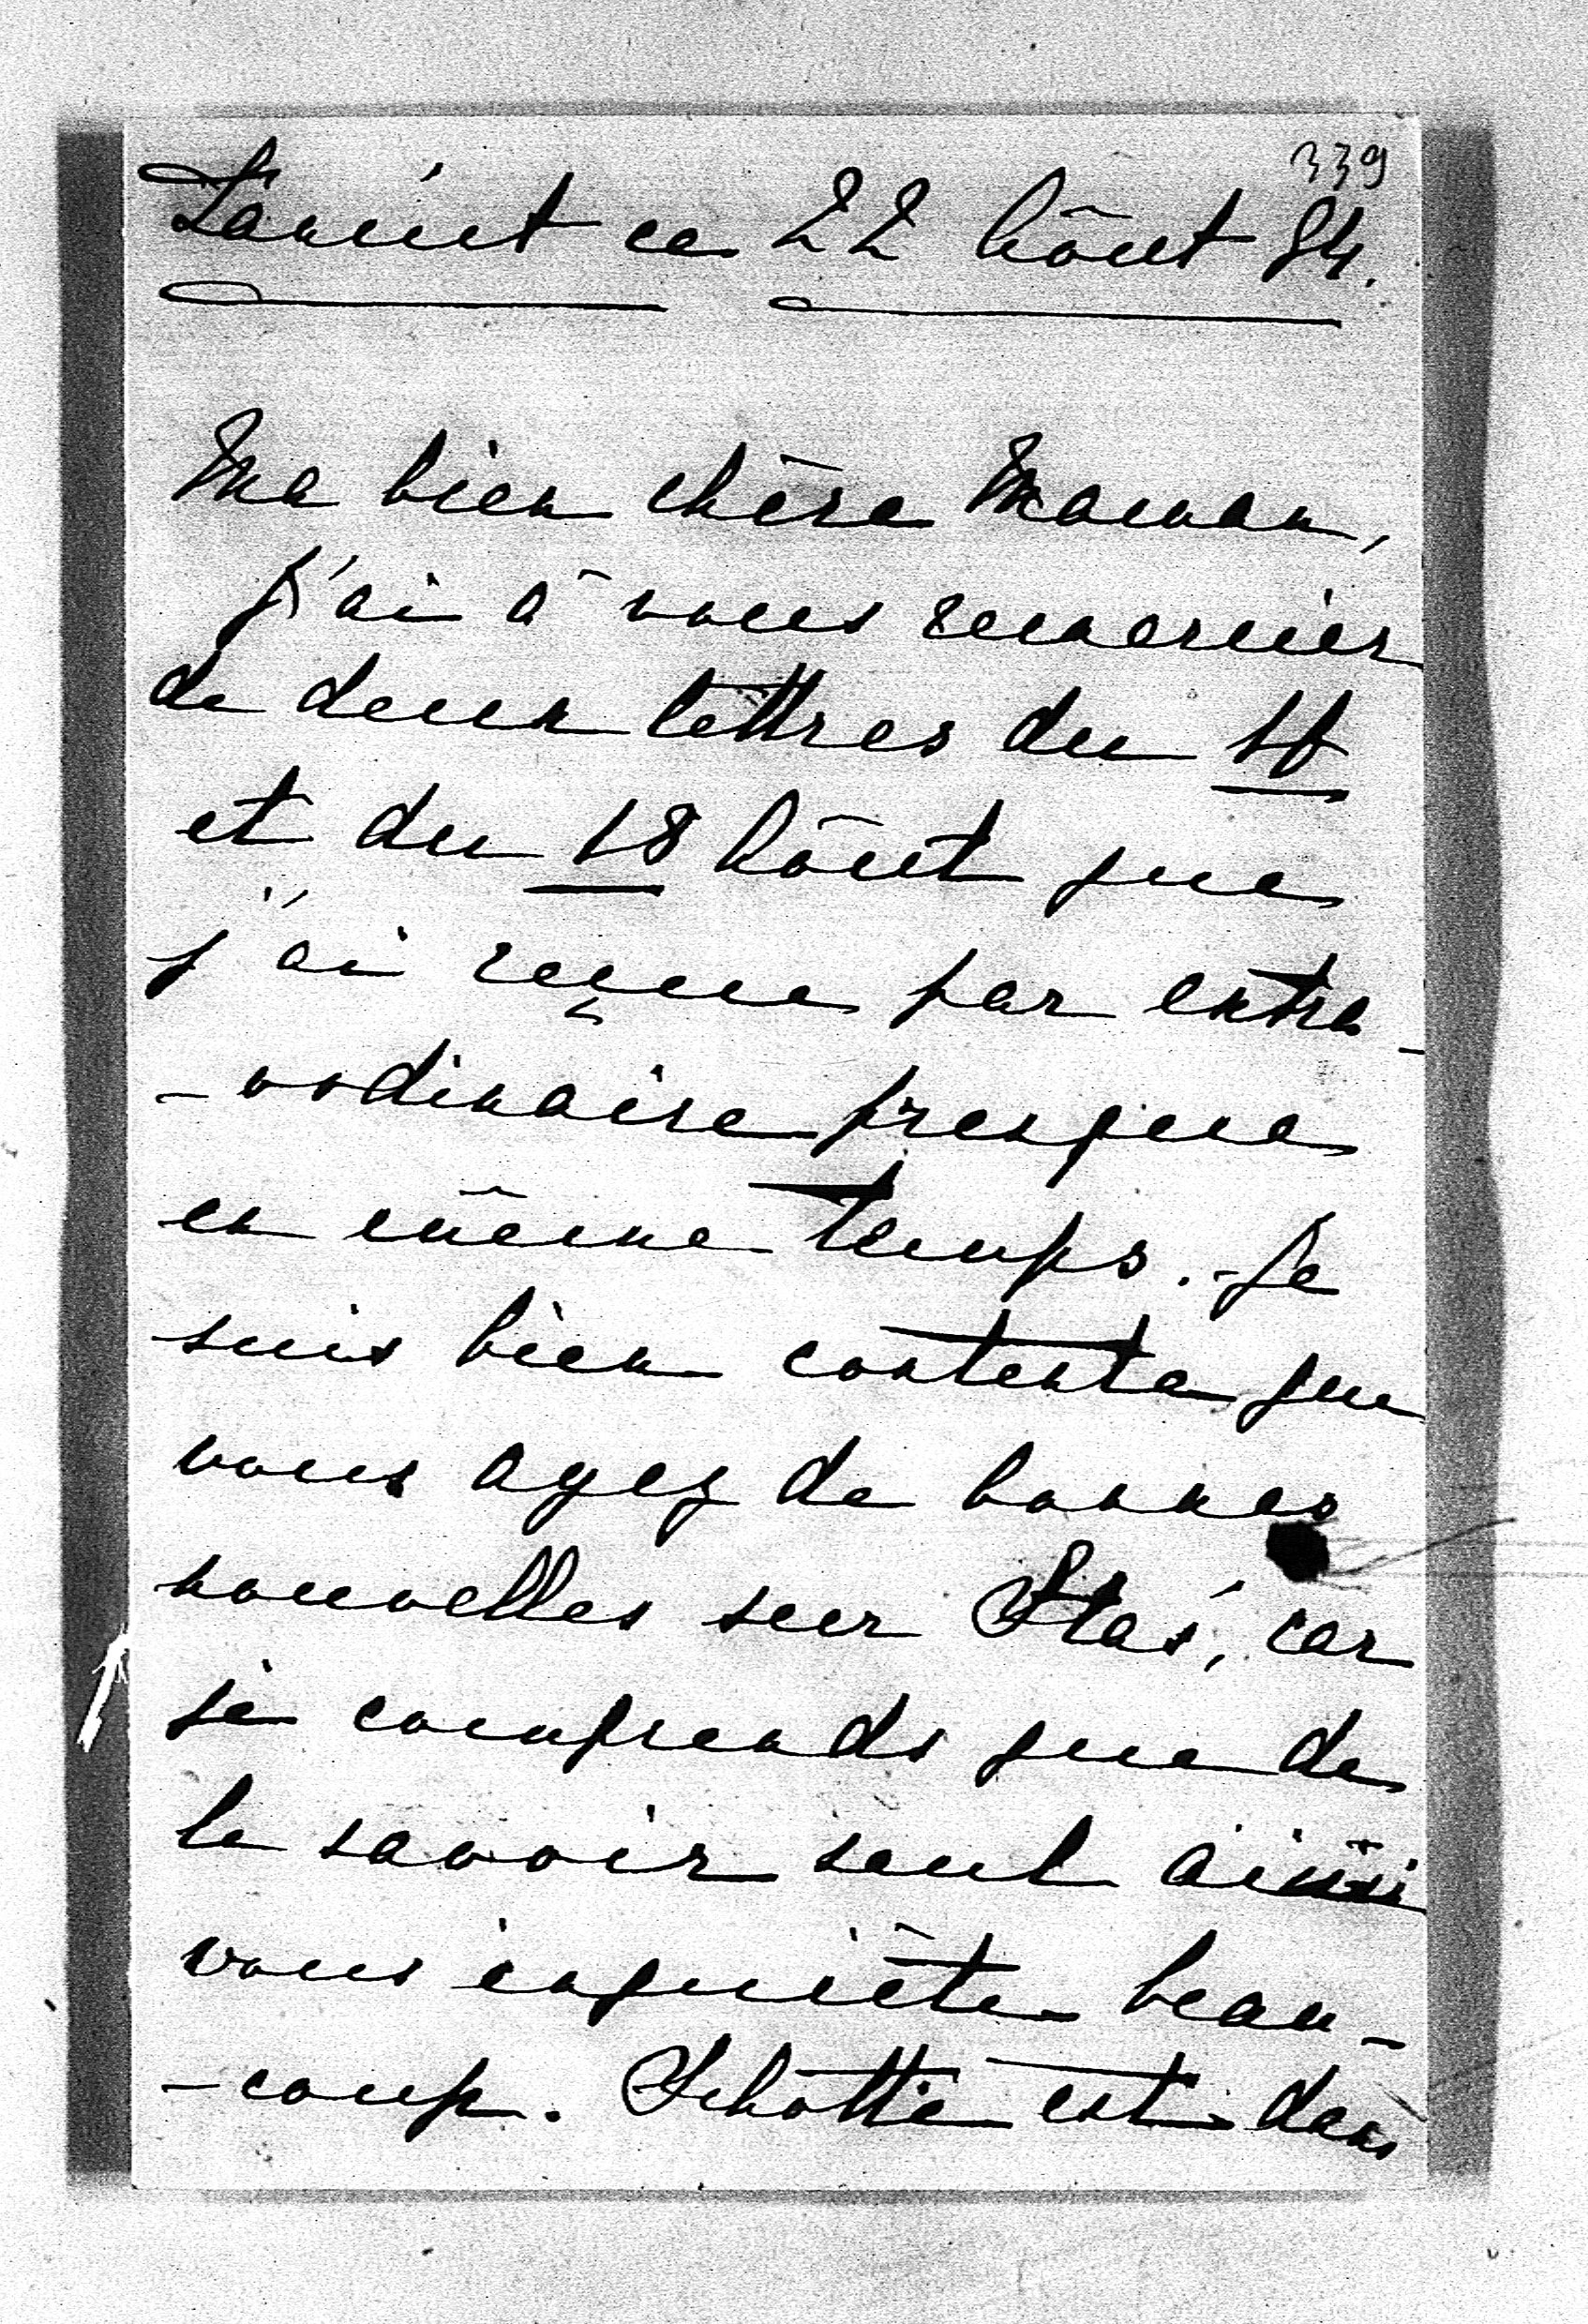 339
Łańcut ce 22 Août 84.
Ma bien chère Maman,
j'ai à vous remercier
de deux lettres du
et du 18 Août que
j'ai reçue par extra-
-ordinaire presque
en même temps. - Je
suis bien contente que
vous ayez de bonnes
nouvelles sur Staś, car
je comprends que de
le savoir seul ainsi
vous inquiète beau-
-coup. Schotti est dans